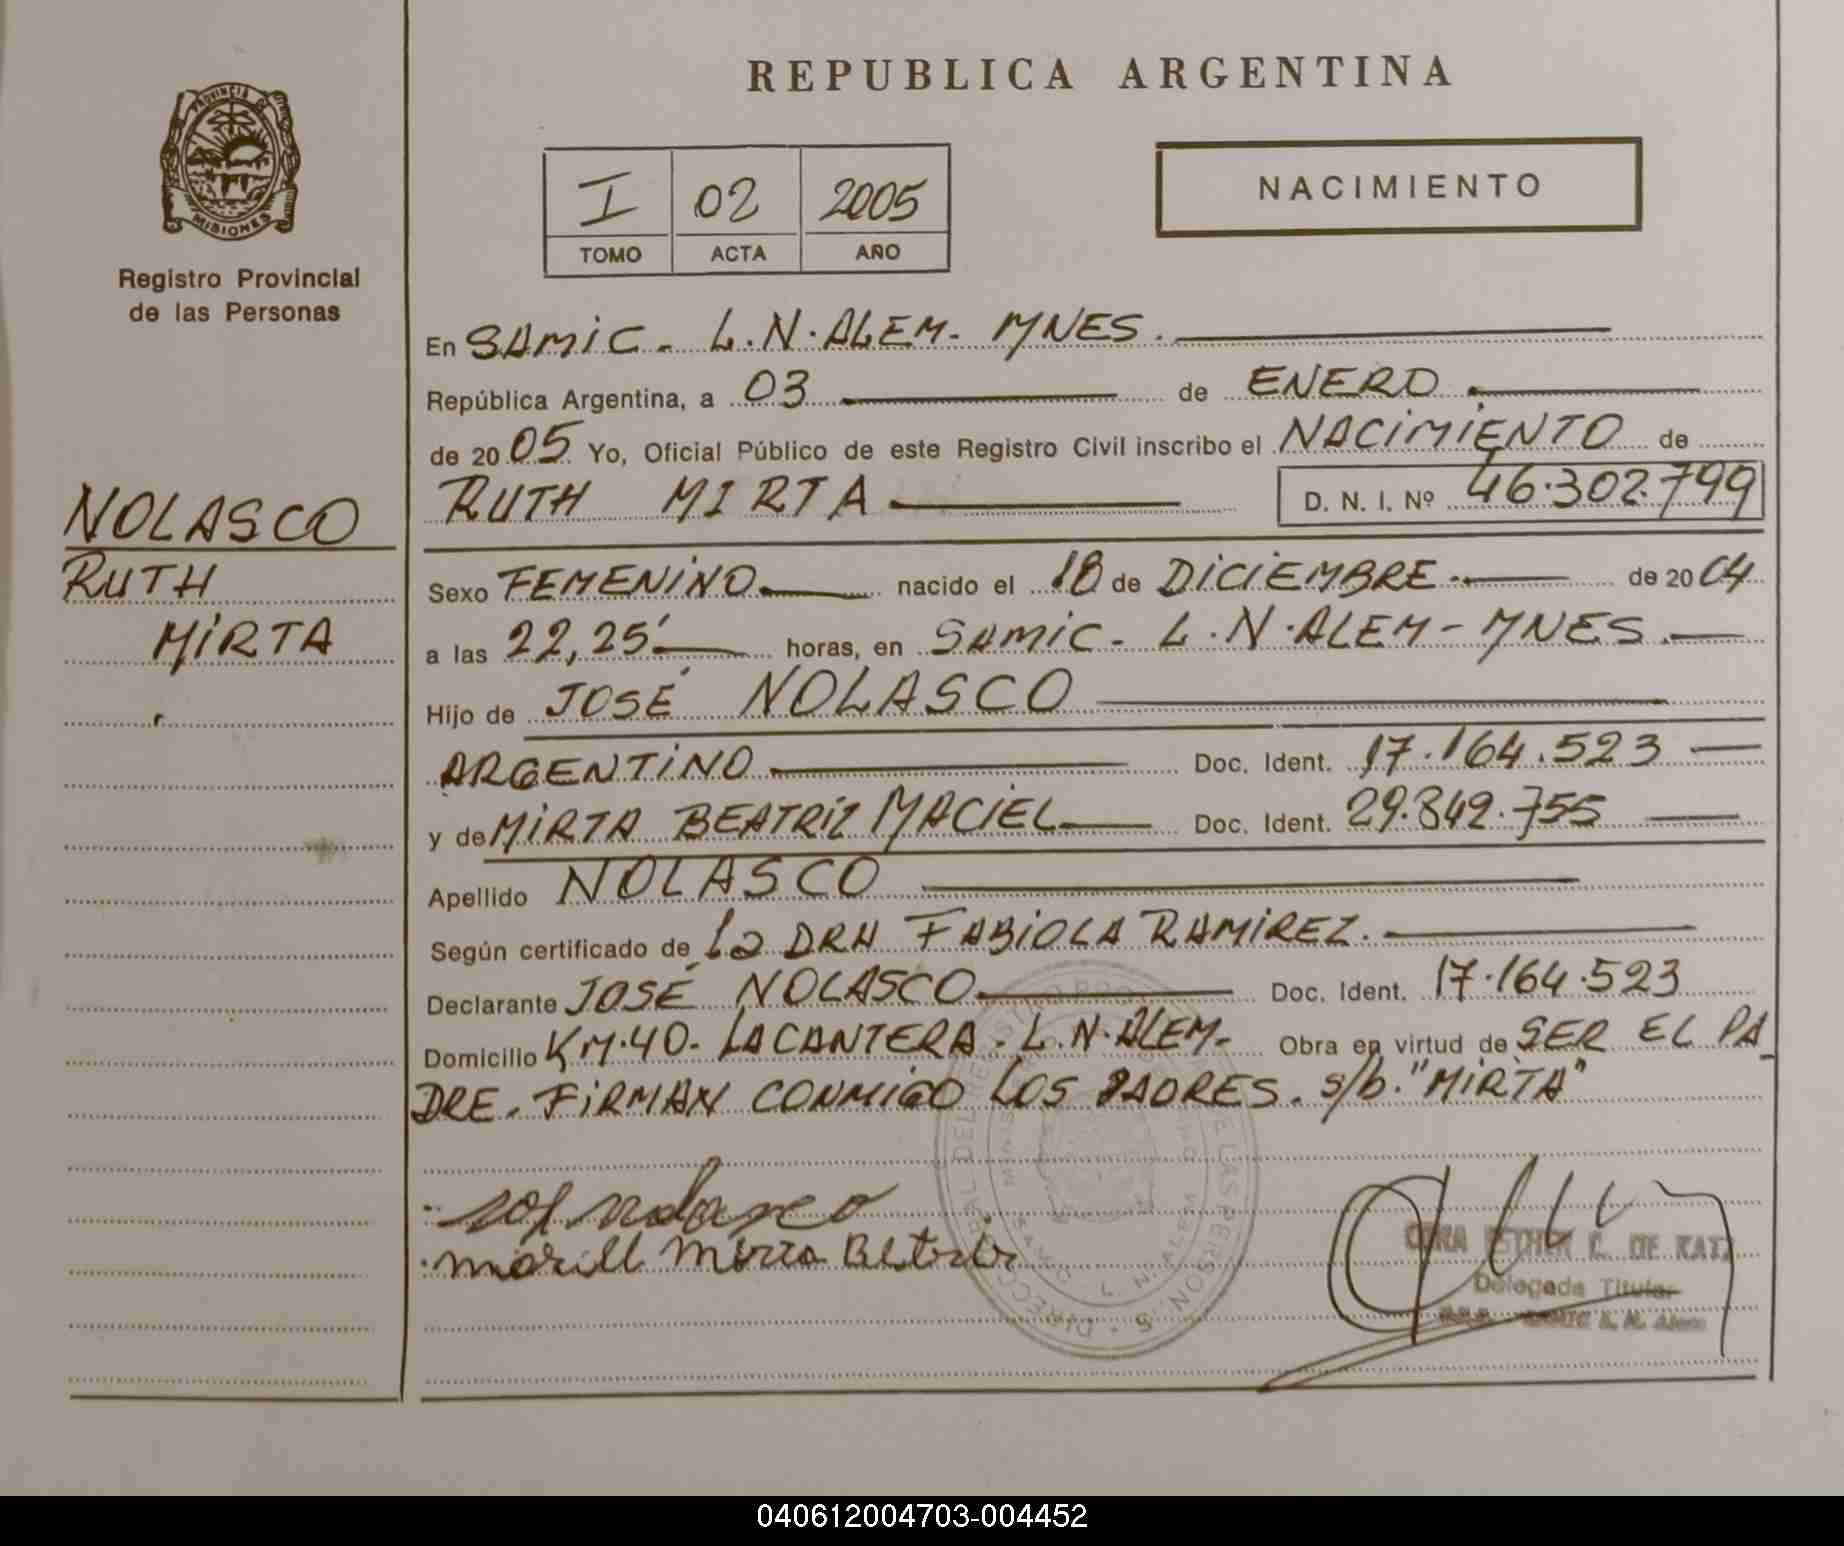 PROVINCIA DE MISIONES
Registro Provincial
de las Personas
NOLASCO
RUTH
MIRTA
REPUBLICA ARGENTINA
I 02 2005
TOMO ACTA AÑO
NACIMIENTO
En SAMIC - L.N. ALEM - MNES.
República Argentina, a 03 de ENERO
de 20 05 Yo, Oficial Público de este Registro Civil inscribo el NACIMIENTO de
RUTH MIRTA D. N. I. Nº 46.302.799
Sexo FEMENINO nacido el 18 de DICIEMBRE de 20 04
a las 22,25' horas, en SAMIC - L.N. ALEM - MNES.
Hijo de JOSÉ NOLASCO
ARGENTINO Doc. Ident. 17.164.523
y de MIRTA BEATRIZ MACIEL Doc. Ident. 29.842.755
Apellido NOLASCO
Según certificado de La DRA FABIOLA RAMIREZ.
Declarante JOSÉ NOLASCO Doc. Ident. 17.164.523
Domicilio KM.40 - LA CANTERA - L.N. ALEM - Obra en virtud de SER EL PA_
DRE. FIRMAN CONMIGO LOS PADRES. s/b. "MIRTA"
Mirta
ESTHER C. DE KATZ
Delegada Titular
L. N. Alem
040612004703-004452